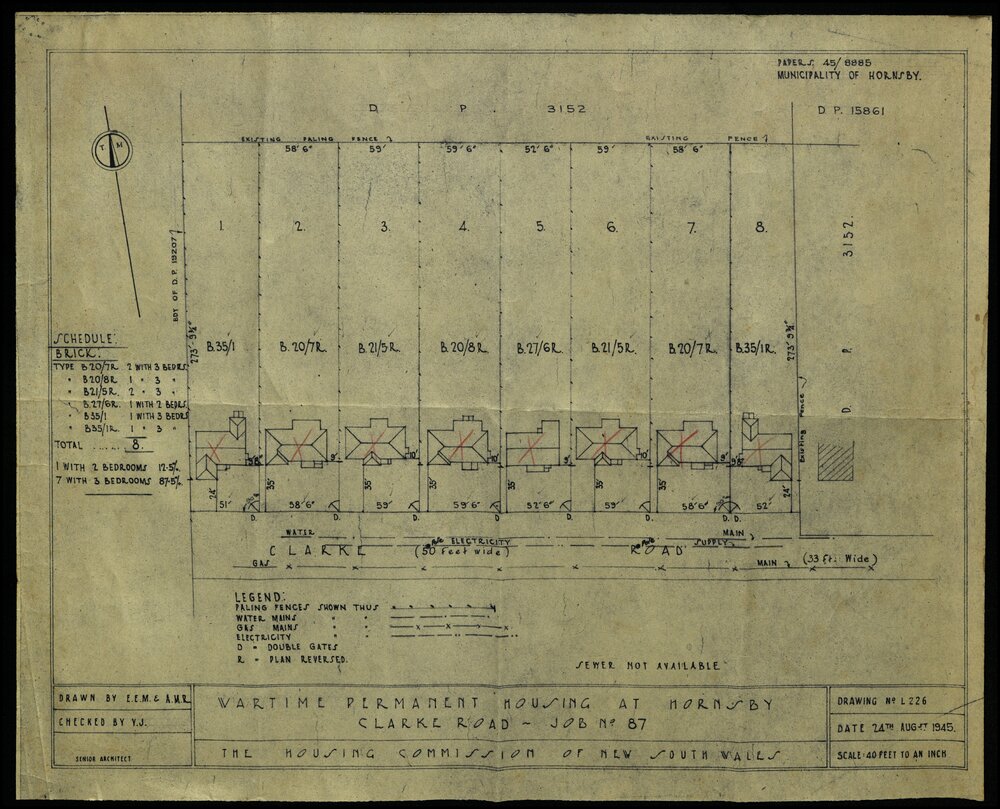 PAPERS. 45/8885
MUNICIPALITY OF HORNSBY.
D P. 3152
D. P. 15861
EXISTING PALING FENCE
EXISTING FENCE
58' 6" 59' 59' 6" 52' 6" 59' 58' 6"
T M
1. 2. 3. 4. 5. 6. 7. 8.
BDY OF D.P. 19207
D. P. 3152.
273' 9½"
273' 9½"
B.35/1 B.20/7R. B.21/5R. B.20/8R. B.27/6R. B.21/5R. B.20/7R. B.35/1R.
SCHEDULE:
BRICK:
TYPE B20/7R 2 WITH 3 BEDRS
" B20/8R 1 " 3 "
" B21/5R. 2 " 3 "
" B.27/6R. 1 WITH 2 BEDRS
" B35/1 1 WITH 3 BEDRS
" B35/1R. 1 " 3 "
TOTAL ....... 8.
1 WITH 2 BEDROOMS 12·5%
7 WITH 3 BEDROOMS 87·5%
Existing Fence
24' 35' 35' 35' 35' 35' 35' 24'
51' 58' 6" 59' 59' 6" 52' 6" 59' 58' 6" 52'
D. D. D. D. D. D. D. D.
WATER MAIN
ELECTRICITY SUPPLY
CLARKE (50 Feet wide) ROAD
GAS MAIN (33 ft. Wide)
LEGEND:
PALING FENCES SHOWN THUS
WATER MAINS " "
GAS MAINS " "
ELECTRICITY " "
D = DOUBLE GATES
R = PLAN REVERSED.
SEWER NOT AVAILABLE
DRAWN BY E.E.M. & A.M.R.
CHECKED BY V.J.
SENIOR ARCHITECT
WARTIME PERMANENT HOUSING AT HORNSBY
CLARKE ROAD ~ JOB Nº 87
THE HOUSING COMMISSION OF NEW SOUTH WALES
DRAWING Nº L 226
DATE 24TH AUGST 1945.
SCALE: 40 FEET TO AN INCH